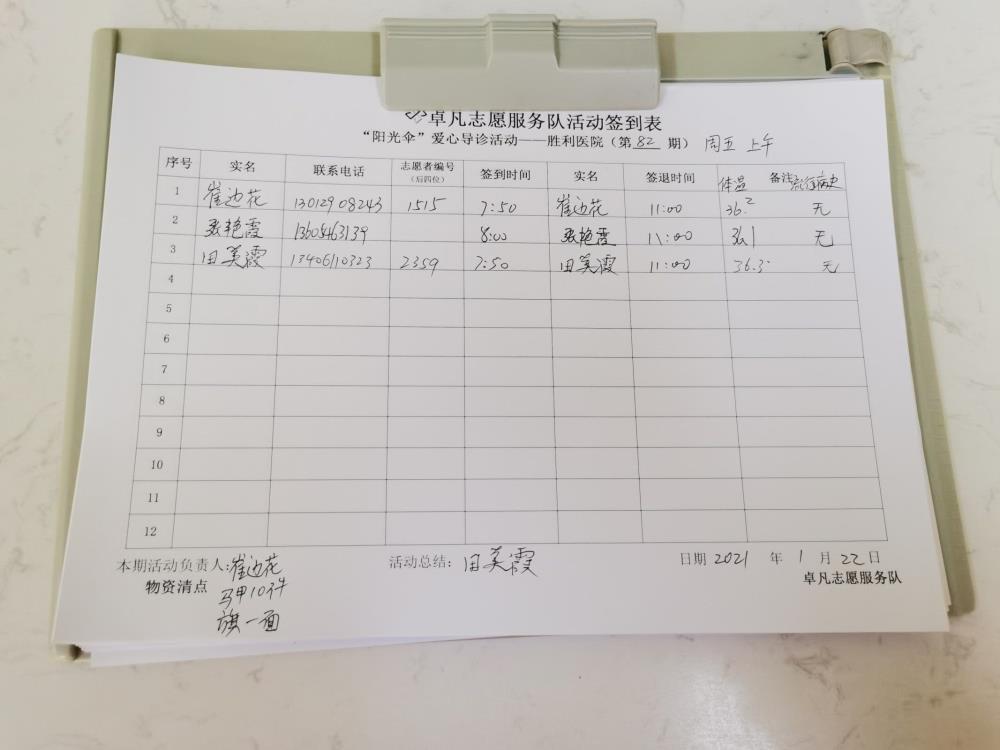 卓凡志愿服务队活动签到表
“阳光伞”爱心导诊活动——胜利医院（第82期） 周五 上午
序号 实名 联系电话 志愿者编号（后四位） 签到时间 实名 签退时间 体温 备注 流行病史
1 崔边花 13012908243 1515 7:50 崔边花 11:00 36.2 无
2 张艳霞 13605463139 8:00 张艳霞 11:00 36.1 无
3 田美霞 13406110323 2359 7:50 田美霞 11:00 36.3 无
4
5
6
7
8
9
10
11
12
本期活动负责人:崔边花 活动总结：田美霞 日期 2021 年 1 月 22 日
物资清点 马甲10件 卓凡志愿服务队
旗一面